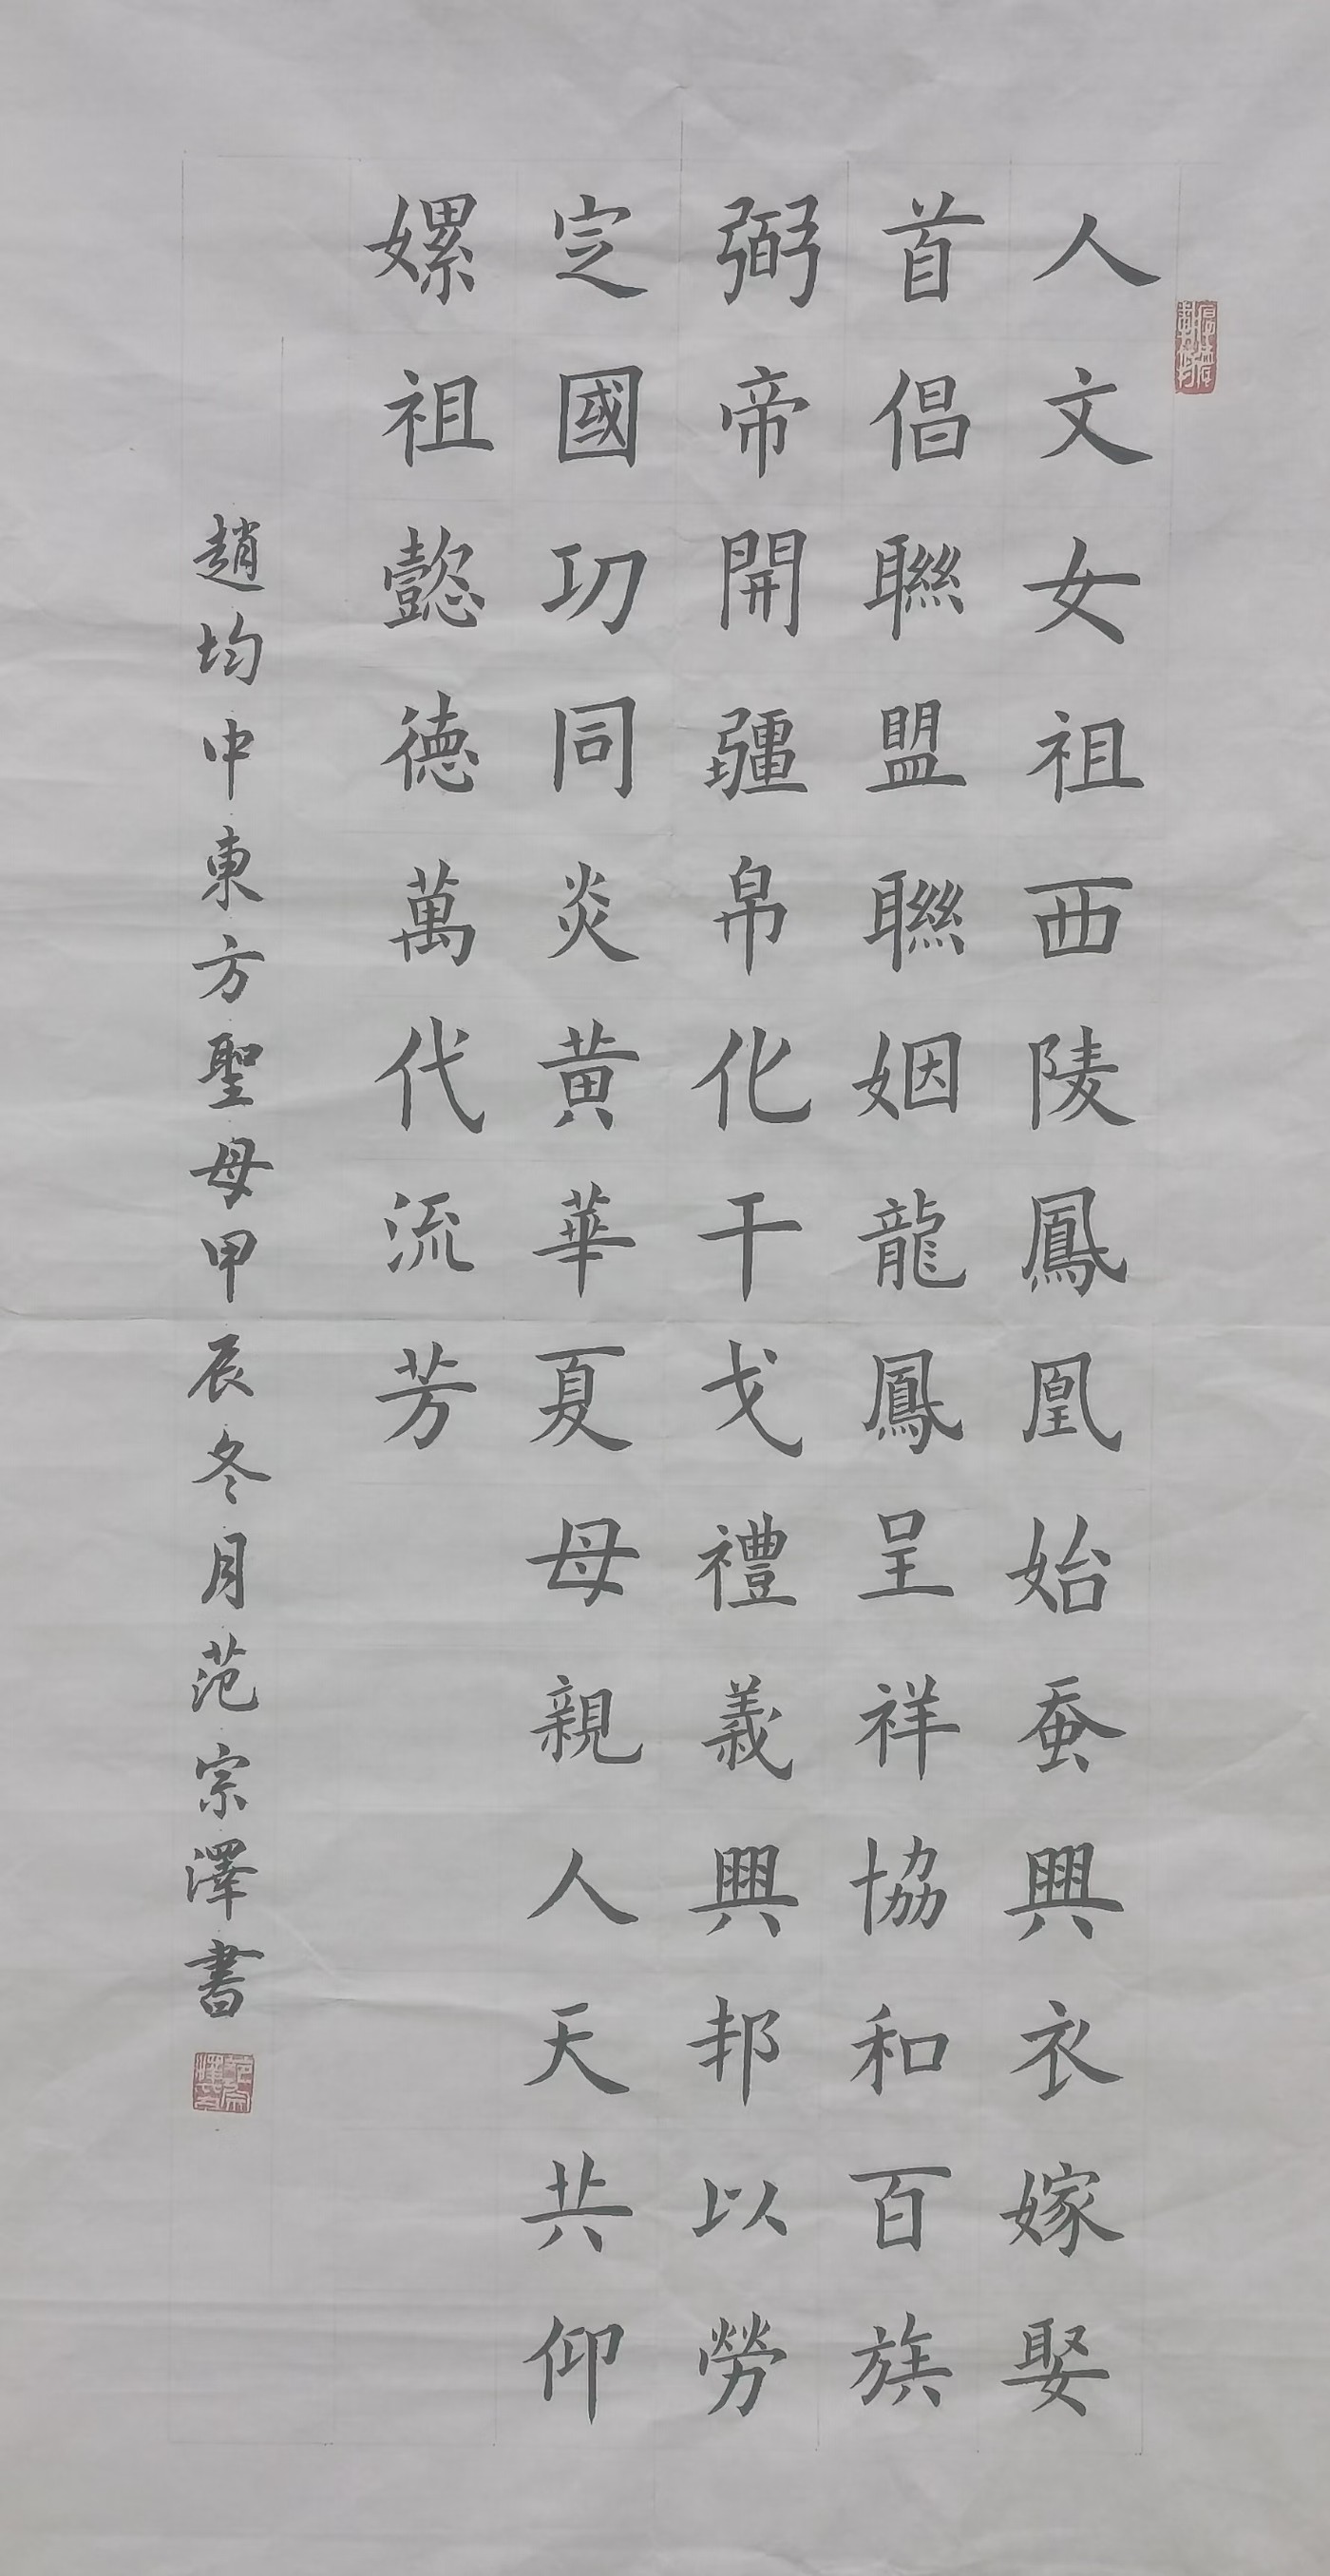 人文女祖西陵鳳凰始蚕興衣嫁娶
首倡聯盟聯姻龍鳳呈祥協和百族
弼帝開疆帛化干戈禮義興邦以勞
定國功同炎黄華夏母親人天共仰
嫘祖懿德萬代流芳
趙均中東方聖母甲辰冬月范宗澤書